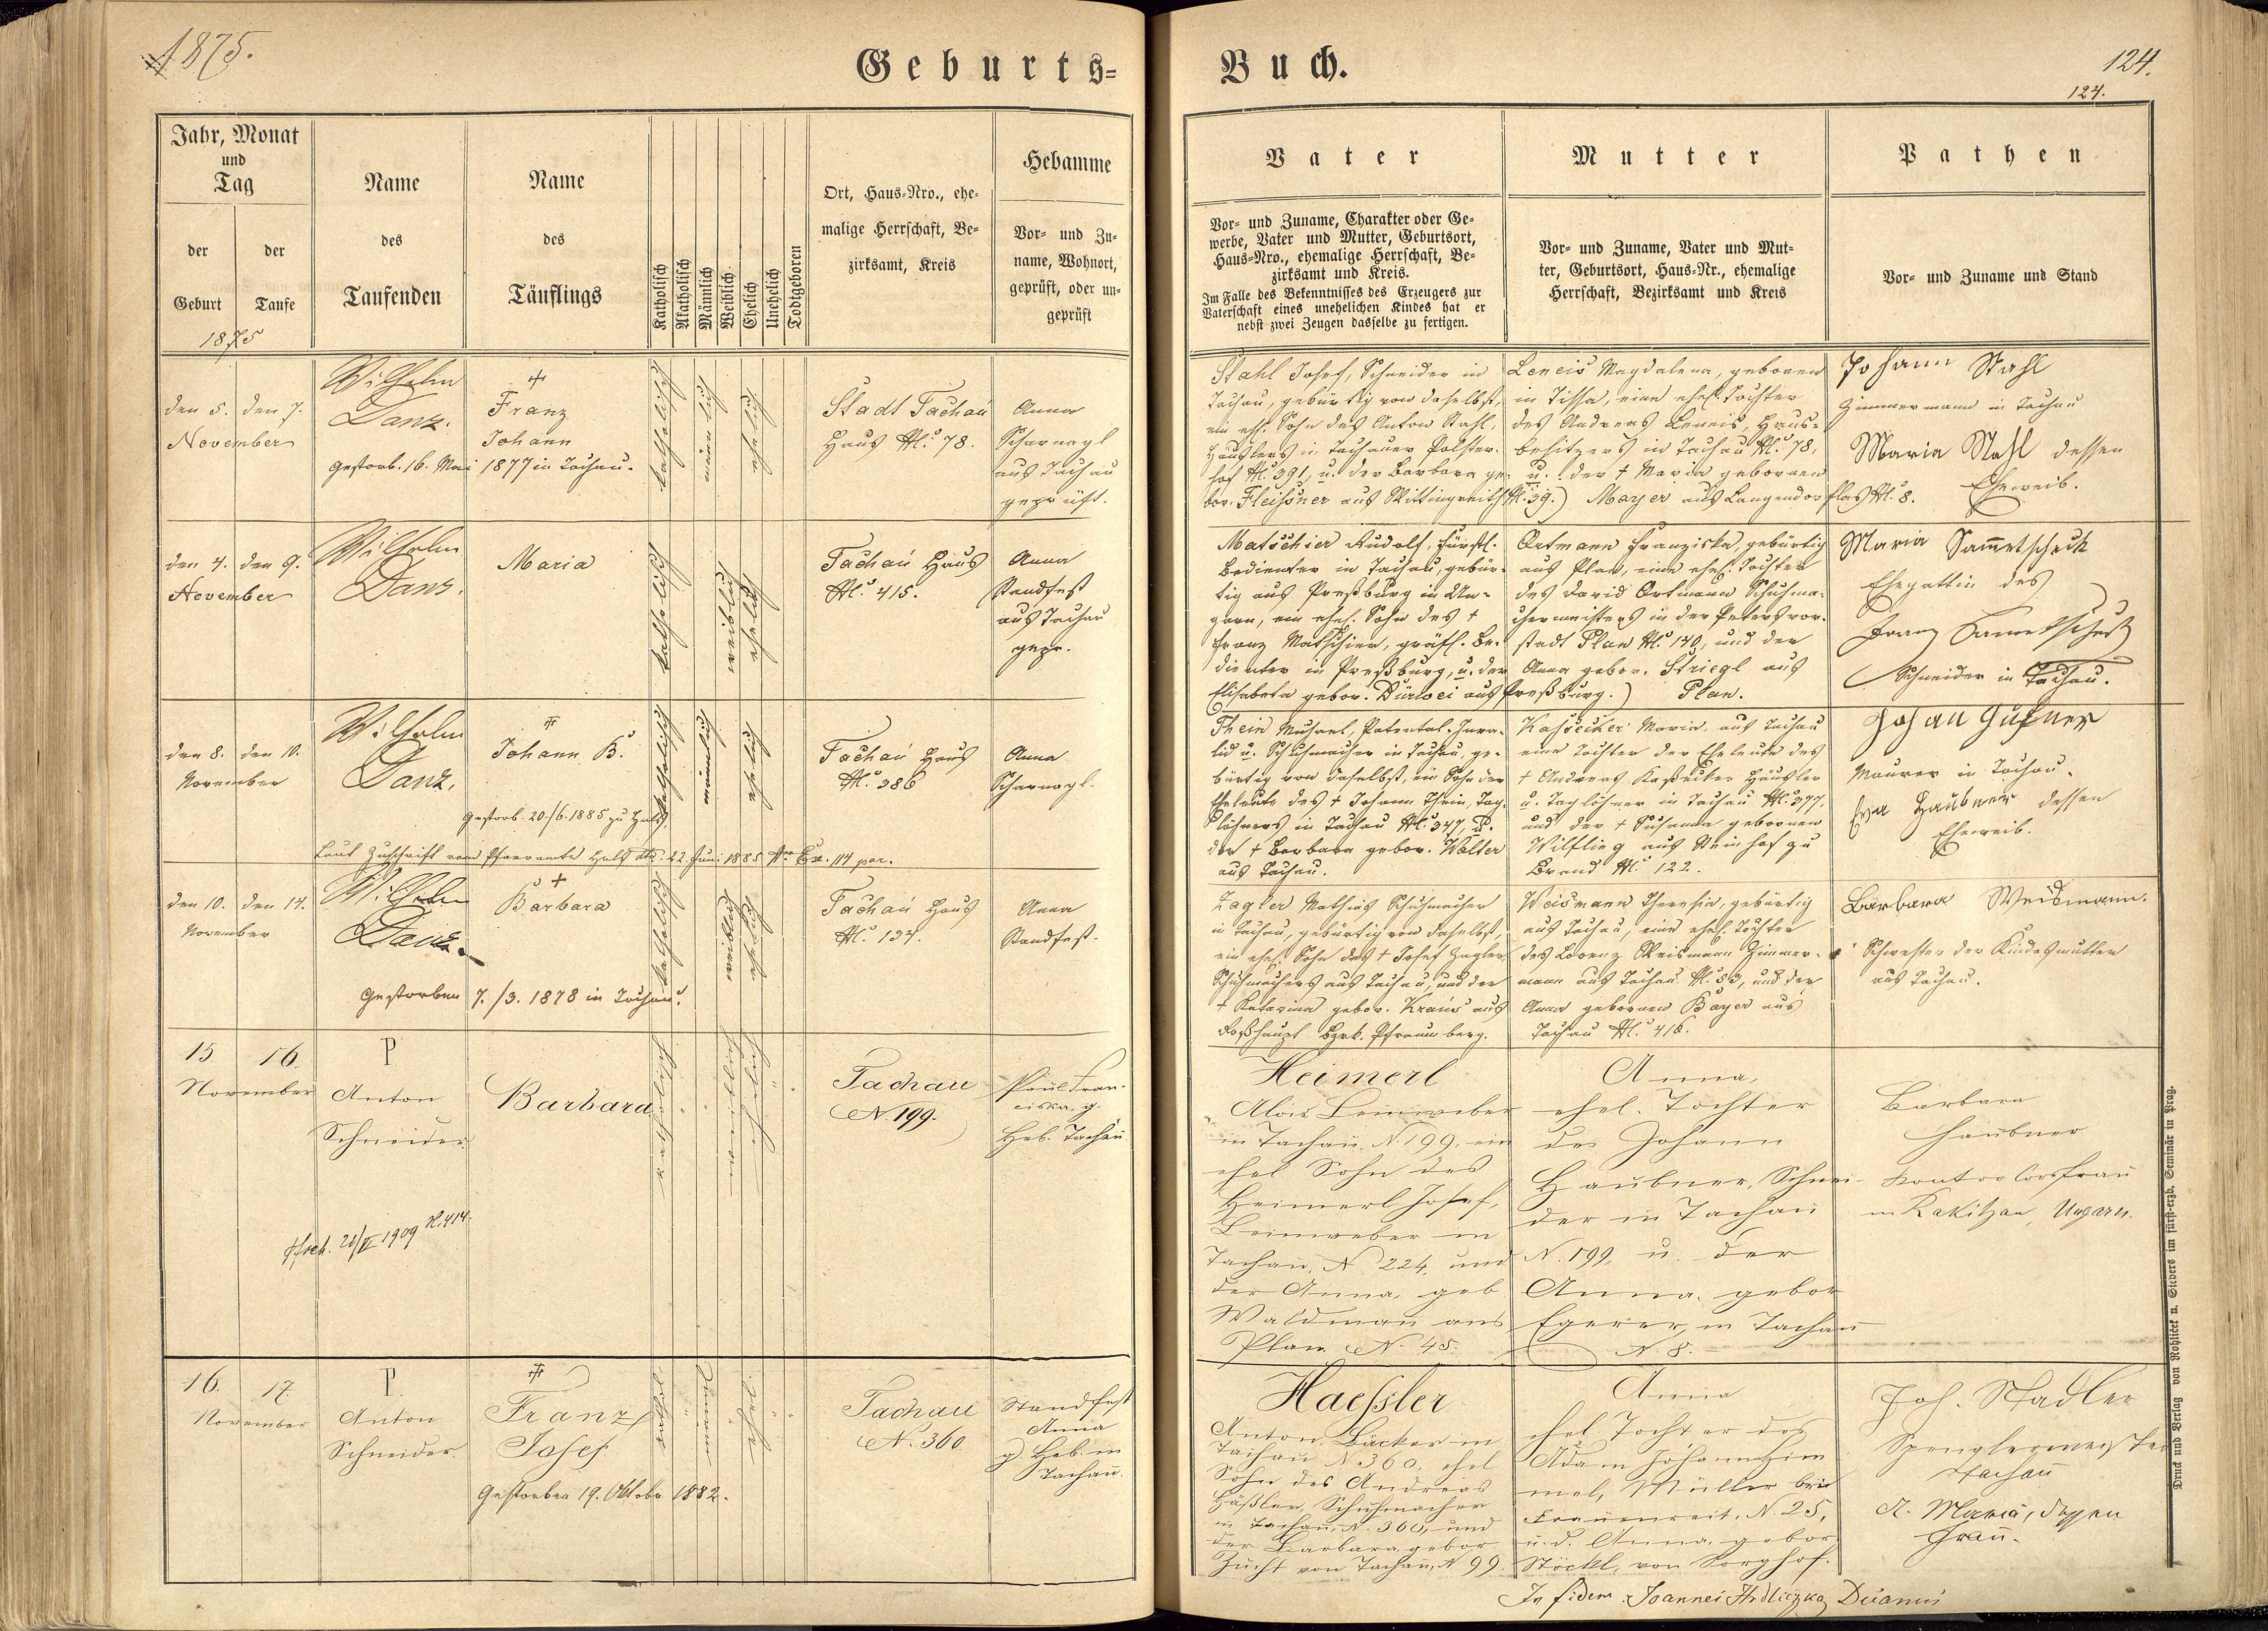 1875.
Geburts-
Buch.
124.
124.
Jahr, Monat
und
Tag
der
Geburt
der
Taufe
1875
Name
des
Taufenden
Name
des
Täuflings
Katholisch
Akatholisch
Männlich
Weiblich
Ehelich
Unehelich
Todtgeboren
Ort, Haus-Nro., ehe-
malige Herrschaft, Be-
zirksamt, Kreis
Hebamme
Vor- und Zu-
name, Wohnort,
geprüft, oder un-
geprüft
Vater
Vor- und Zuname, Charakter oder Ge-
werbe, Vater und Mutter, Geburtsort,
Haus-Nro., ehemalige Herrschaft, Be-
zirksamt und Kreis.
Im Falle des Bekenntnisses des Erzeugers zur
Vaterschaft eines unehelichen Kindes hat er
nebst zwei Zeugen dasselbe zu fertigen.
Mutter
Vor- und Zuname, Vater und Mut-
ter, Geburtsort, Haus-Nr., ehemalige
Herrschaft, Bezirksamt und Kreis
Pathen
Vor- und Zuname und Stand
den 5. den 7.
November
Wilhelm
Danz.
Franz
Johann
Gestorb. 16. Mai 1877 in Tachau.
katholisch
männlich
ehelich
Stadt Tachau
Haus N. 78.
Anna
Scharnagl
aus Tachau
geprüft.
Stahl Josef, Schneider in
Tachau, gebürtig von daselbst,
ein ehl. Sohn des Anton Stahl,
Häuslers in Tachauer Polster-
hof N. 391, u. der Barbara ge-
bor. Fleißner aus Wittingreith N. 39.)
Leneis Magdalena, geboren
in Tissa, eine ehel. Tochter
des Andreas Leneis, Haus-
besitzers in Tachau N. 78,
u. der † Maria geborenen
Mayer aus Langendorflas N. 8.
Johann Stahl
Zimmermann in Tachau
Maria Stahl dessen
Eheweib.
den 4. den 9.
November
Wilhelm
Danz.
Maria
katholisch
weiblich
ehelich
Tachau Haus
N. 415.
Anna
Standfest
aus Tachau
gepr.
Matschier Rudolf, fürstl.
Bedienter in Tachau, gebür-
tig aus Preßburg in Un-
garn, ein ehel. Sohn des †
Franz Matschier, gräfl. Be-
dienter in Preßburg, u. der
Elisabeta gebor. aus Preßburg.)
Ortmann Franziska, gebürtig
aus Plan, eine ehel. Tochter
des David Ortmann Schuhma-
chermeisters in der Petersvor-
stadt Plan N. 140, und der
Anna gebor. Striegl aus
Plan.
Maria Sam̄etscheck
Ehegattin des
Franz Sametscheck
Schneider in Tachau.
den 8. den 10.
November
Wilhelm
Danz.
Johann B.
Gestorb. 20./6. 1885 zu Hals,
Laut Zuschrift vom Pfarramte Hals dto. 22. Juni 1885 Nro Ex. 114 par.
katholisch
männlich
ehelich
Tachau Haus
N. 386
Anna
Scharnagl.
Thein Michael, Patental-Inva-
lid u. Schuhmacher in Tachau, ge-
bürtig von daselbst, ein Sohn der
Eheleute des † Johann Thein, Tag-
löhners in Tachau N. 347, u.
der † Barbara gebor. Walter
aus Tachau.
Kassecker Maria, aus Tachau
eine Tochter der Eheleute des
† Andreas Kaßecker Häusler
u. Taglöhner in Tachau N. 377,
und der † Susanna geborenen
Wilfling aus Steinhof zu
Brand N. 122.
Johan
Maurer in Tachau.
Eva Haubner dessen
Eheweib.
den 10. den 14.
November
Wilhelm
Danz.
Barbara
Gestorben 7./3. 1878 in Tachau.
katholisch
weiblich
ehelich
Tachau Haus
N. 134.
Anna
Standfest.
Zagler Mathias Schuhmacher
in Tachau, gebürtig von daselbst,
ein ehel. Sohn des † Josef Zagler
Schuhmachers aus Tachau, und der
† Katarina gebor. Kraus aus
Roßhaupt Bzrk. Pfraumberg.
Weismann Theresia, gebürtig
aus Tachau, eine ehel. Tochter
des Lorenz Weismann Zimmer-
mann aus Tachau N. 53, und der
Anna geborenen Bayer aus
Tachau N. 416.
Barbara Weismann.
Schwester der Kindesmutter
aus Tachau.
15 16.
November
P
Anton
Schneider.
Barbara
katholisch
weiblich
ehelich
Tachau
N. 199.
Paul Fran-
ciska. g.
Heb. Tachau
21/II 1909 N. 414.
Heimerl
Alois Leinweber
in Tachau, N. 199, ein
ehel Sohn des
Heimerl Josef,
Leinweber in
Tachau, N. 224, und
der Anna, geb
Waldman aus
Plan N. 45.
Anna,
ehel. Tochter
des Johann
Haubner, Schnei-
der in Tachau
N. 199, u. der
Anna. gebor
Egerer, in Tachau
N. 8.
Barbara
Haubner
in Rakitzan, Ungarn.
16. 17.
November
P.
Anton
Schneider.
Franz
Josef
Gestorben 19. Oktober 1882.
kathol.
männl.
ehel.
Tachau
N. 360.
Standfest
Anna
g. Heb. in
Tachau.
Haeßler
Anton. Bäcker in
Tachau N. 360, ehel
Sohn des Andreas
Häßler, Schuhmacher
in Tachau, N. 360, und
der Barbara gebor
Zucht von Tachau, N 99.
Anna
ehel Tochter des
Adam Johann Him
mel, Müller bei
Frauenreit. N. 25,
u. d. Anna. gebor
Stöckl, von Sorghof.
Joh. Stadler
Spenglermeister
Tachau
A. Maria, dessen
Frau.
In fidem Joannes Hrdliczka, Decanus
Druck und Verlag von Rohliček u. Sievers im fürst-erzb. Seminär in Prag.